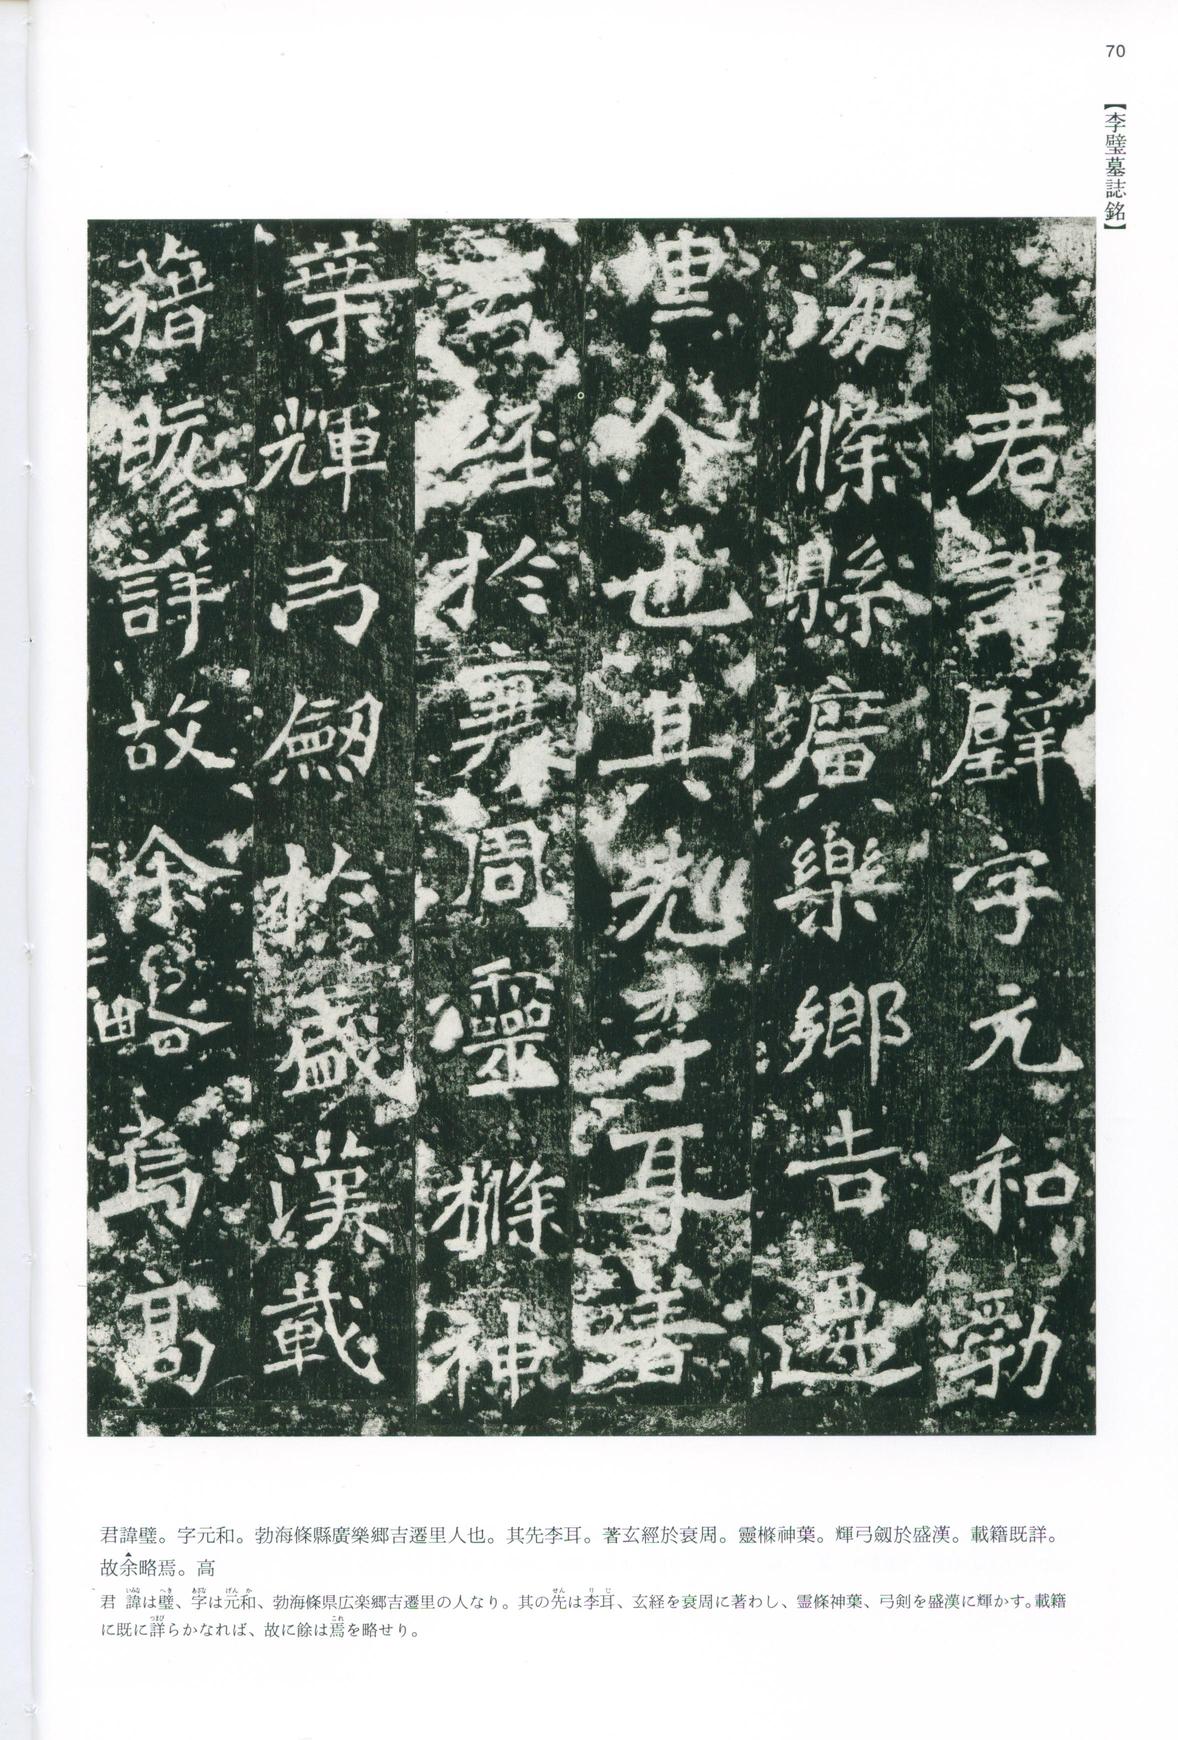 70
【李璧墓誌銘】
君諱璧字元和勃
海條縣廣樂鄉吉遷
里人也其先李耳著
玄經於衰周靈樤神
葉輝弓劒於盛漢載
籍既詳故余略焉高
君諱璧。字元和。勃海條縣廣樂鄉吉遷里人也。其先李耳。著玄經於衰周。靈樤神葉。輝弓劒於盛漢。載籍既詳。
故余略焉。高
君諱は璧、字は元和、勃海條県広楽郷吉遷里の人なり。其の先は李耳、玄経を衰周に著わし、霊條神葉、弓剣を盛漢に輝かす。載籍
に既に詳らかなれば、故に餘は焉を略せり。